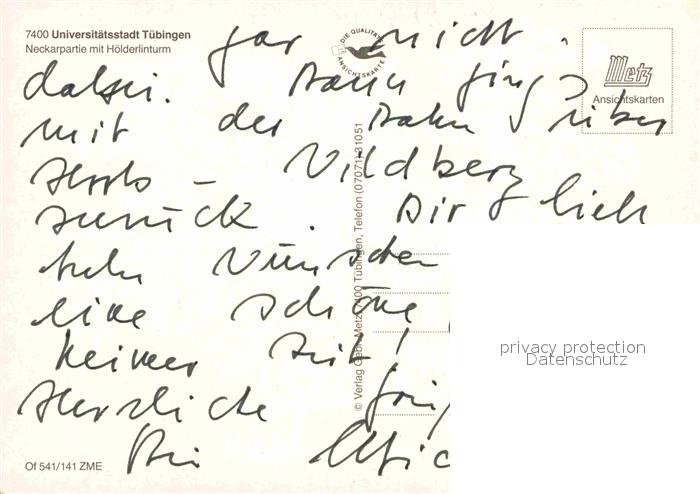 7400 Universitätsstadt Tübingen
Neckarpartie mit Hölderlinturm
DIE QUALITÄTS
ANSICHTSKARTE
Metz
Ansichtskarten
gar nicht
dabei. Dann ging's
mit der Bahn über
Wildberg
zurück.
wünschen
eine schöne
Zeit!
Herzliche
© Verlag Gebr. Metz, 7400 Tübingen, Telefon (07071) 31051
privacy protection
Datenschutz
Of 541/141 ZME